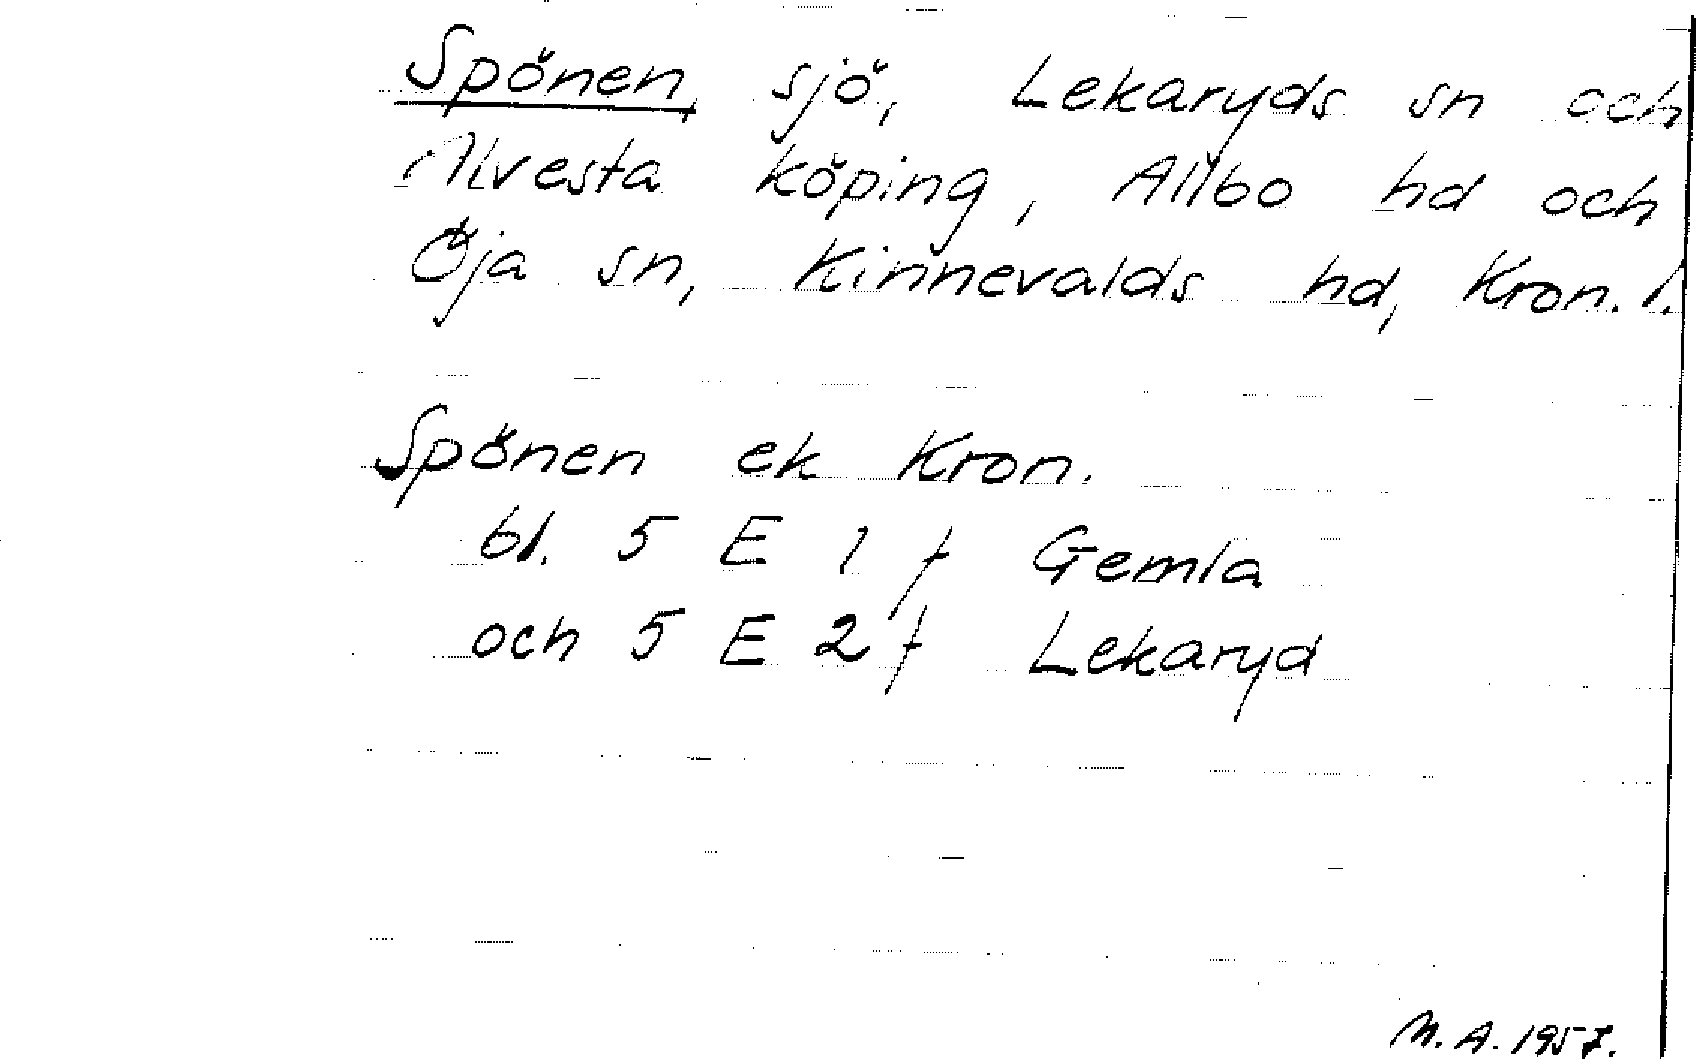 Spånen, sjö, Lekaryds sn och
Alvesta köping, Allbo hd och
Öja sn, Kinnevalds hd, Kron. l.
Spånen ek Kron.
bl. 5 E 1 f Gemla
och 5 E 2 f Lekaryd
M. A. 1957.